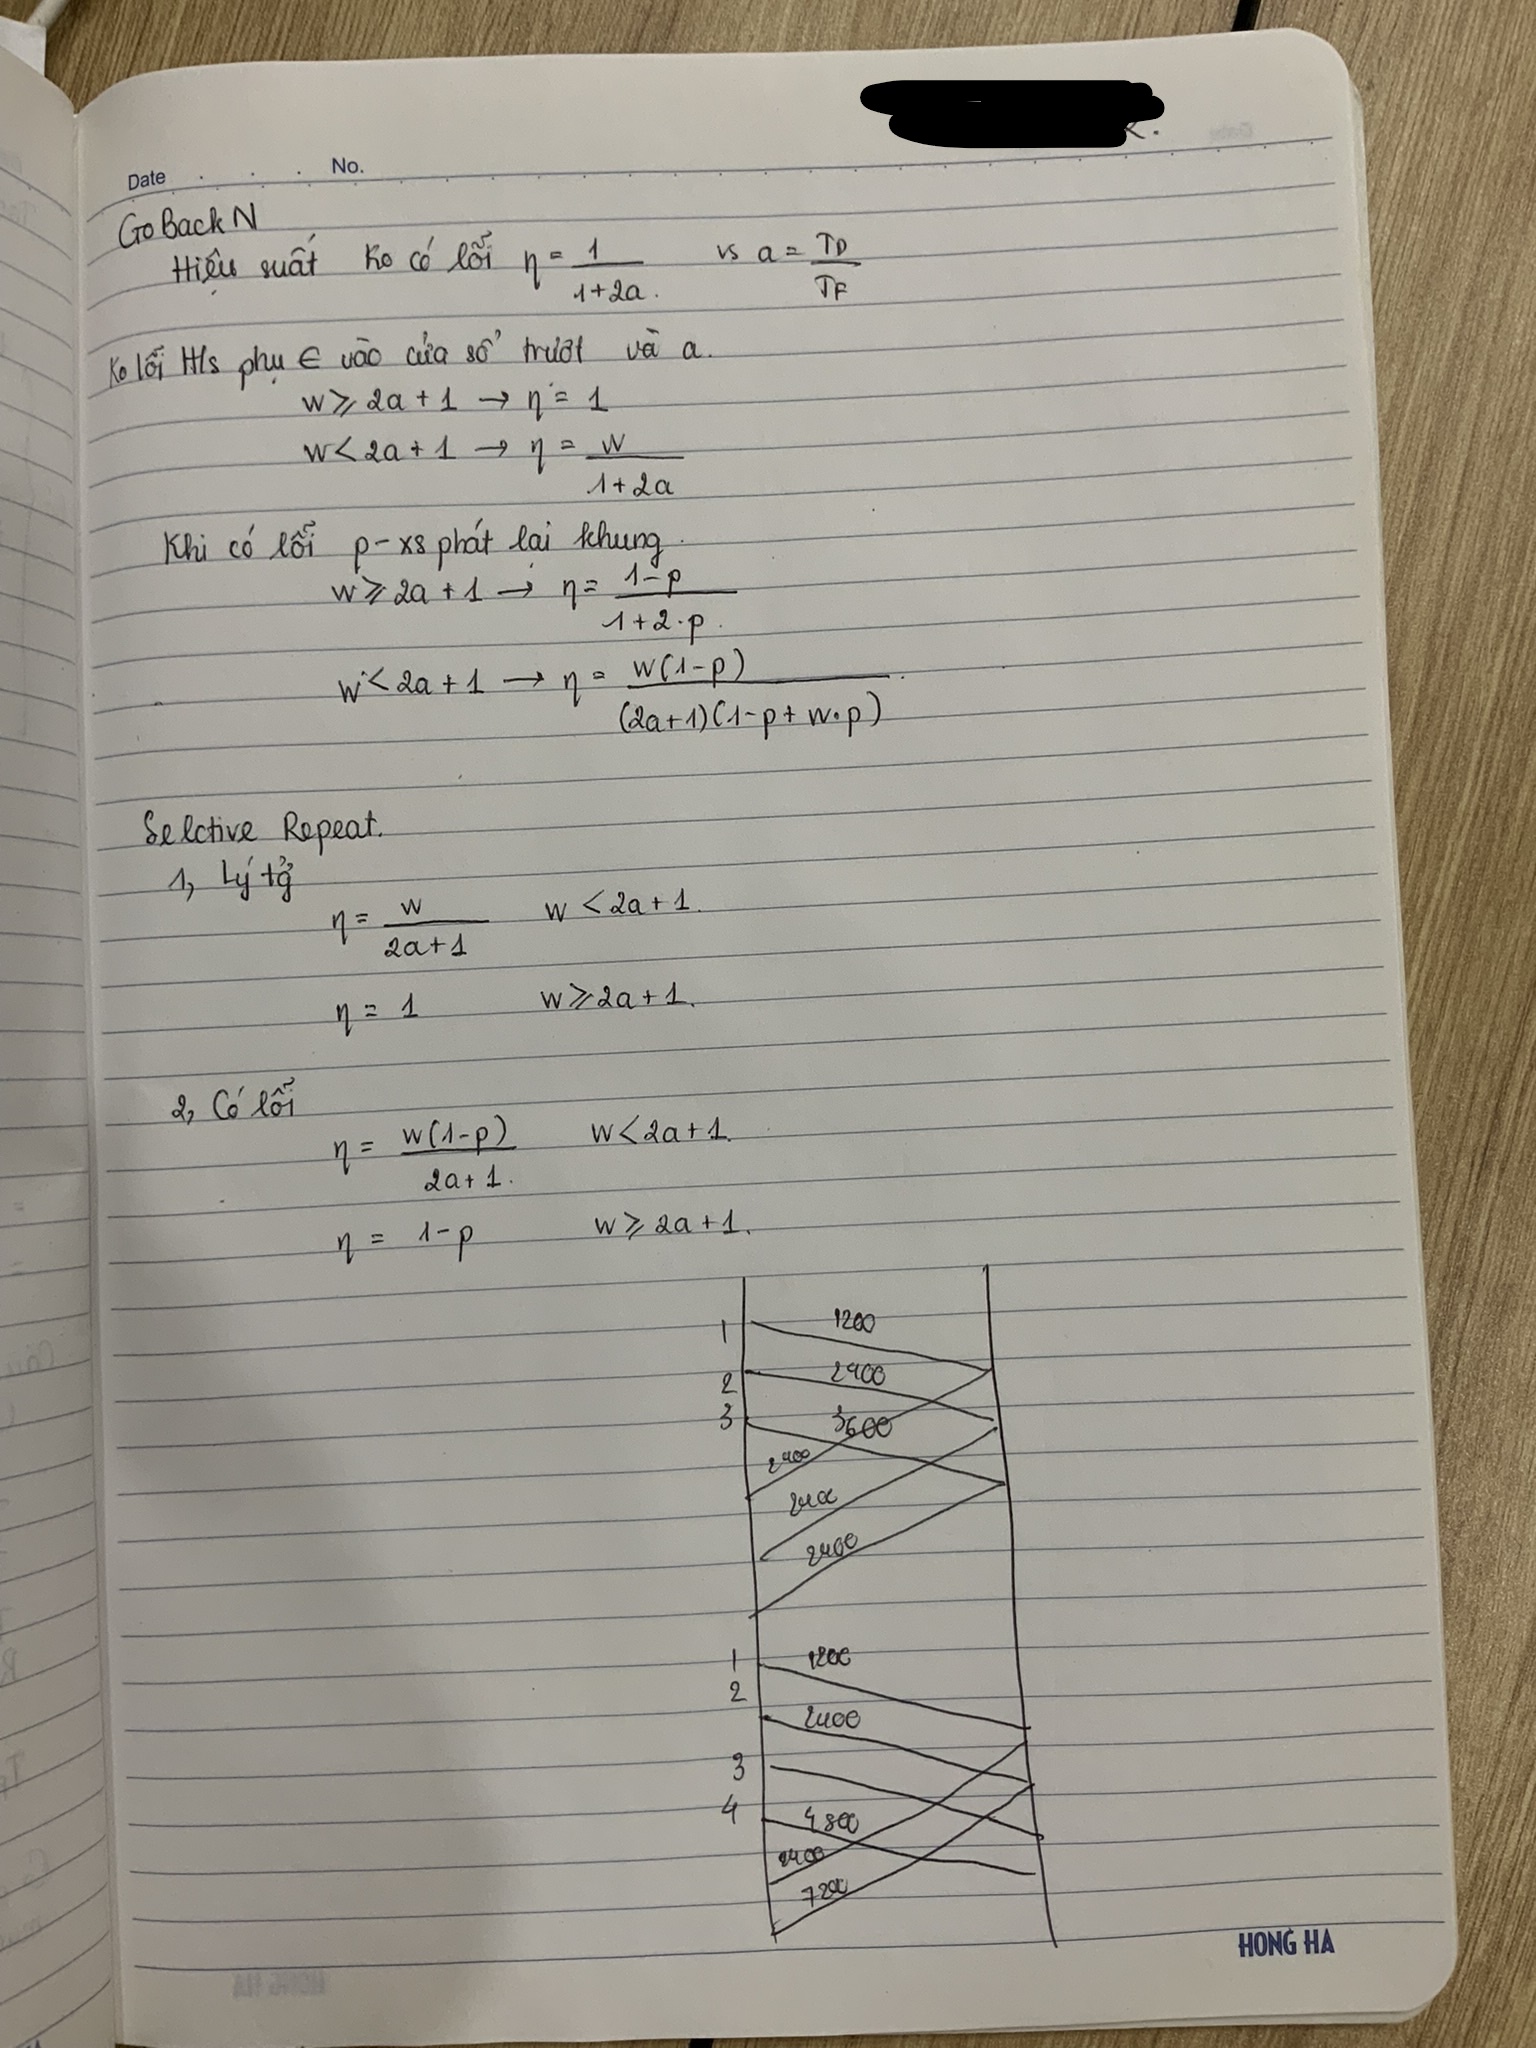 Date No.
Go Back N
Hiệu suất ko có lỗi η = 1/(1+2a) vs a = TD/TF
Ko lỗi H/s phụ ∈ vào cửa sổ trượt và a.
W ≥ 2a + 1 → η = 1
W < 2a + 1 → η = W/(1+2a)
Khi có lỗi p - xs phát lại khung.
W ≥ 2a + 1 → η = (1-p)/(1+2.p)
W < 2a + 1 → η = W(1-p)/((2a+1)(1-p+W.p))
Selctive Repeat.
1, Lý tg
η = W/(2a+1) W < 2a+1.
η = 1 W ≥ 2a+1.
2, Có lỗi
η = W(1-p)/(2a+1) W < 2a+1.
η = 1-p W ≥ 2a+1.
1 1200
2 2400
3 3600
2400
2400
2400
1 1200
2
2400
3
4 4800
2400
7200
HONG HA